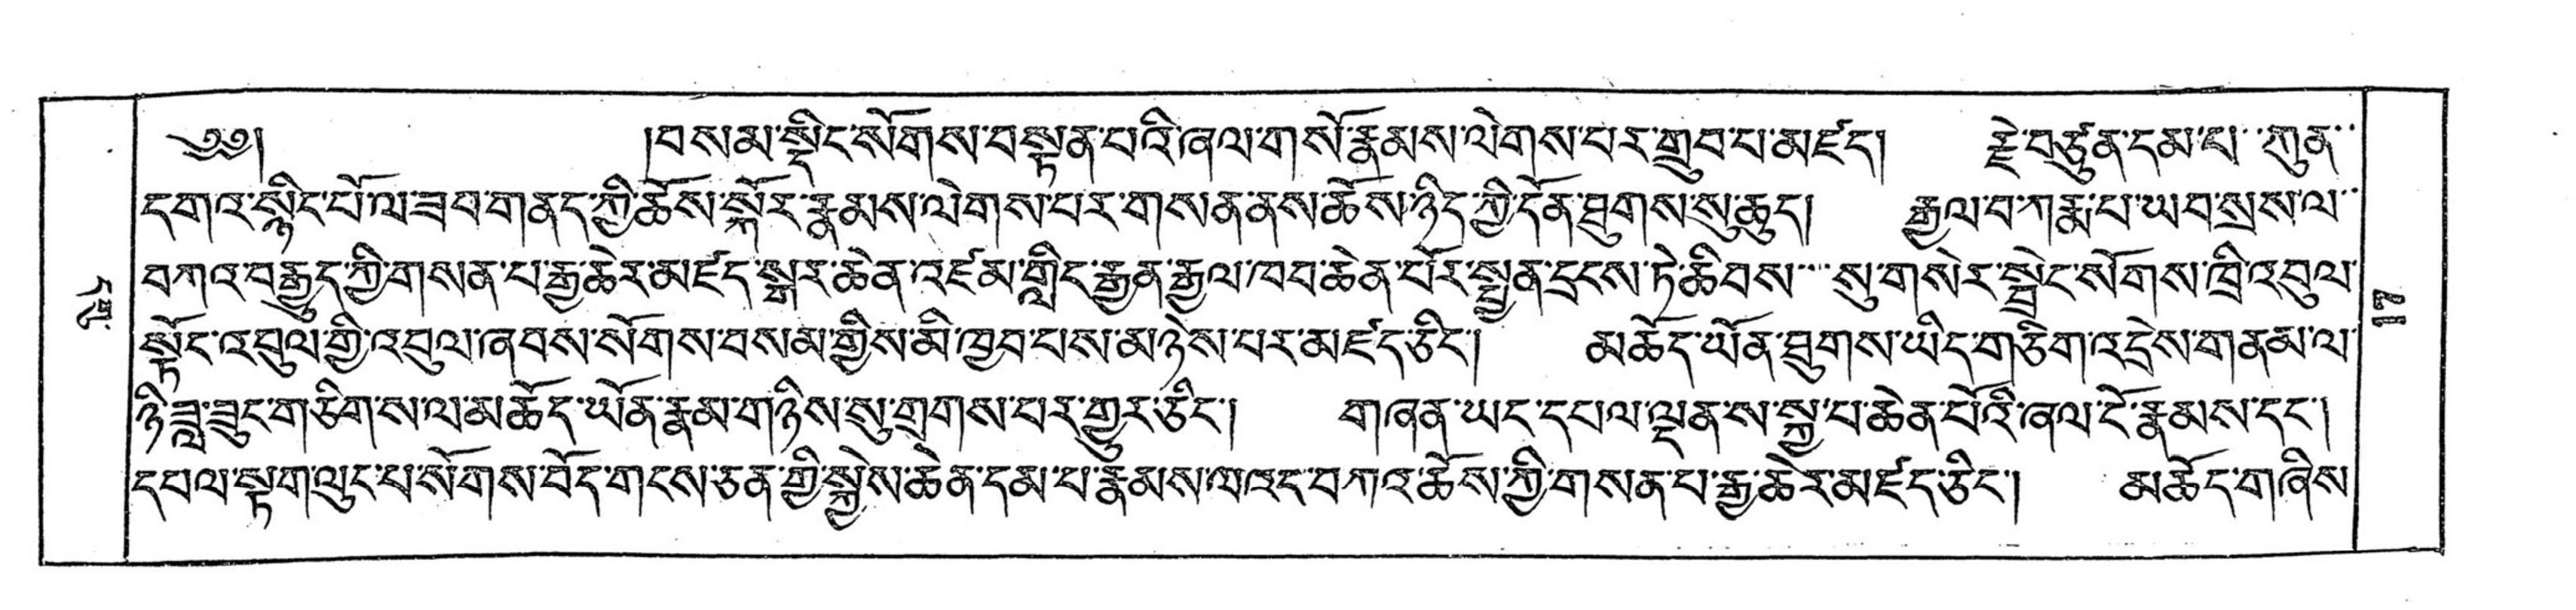 ༄༅། །བསམ་སྡིང་སོགས་བསྟན་པའི་ཞལ་གསོ་རྣམས་ལེགས་པར་གྲུབ་པ་མཛད། རྗེ་བཙུན་དམ་པ་ཀུན་
དགའ་སྙིང་པོ་ལ་ཟབ་གནད་ཀྱི་ཆོས་སྐོར་རྣམས་ལེགས་པར་གསན་ནས་ཆོས་ཉིད་ཀྱི་དོན་ཐུགས་སུ་ཆུད། རྒྱལ་བ་ཀརྨ་པ་ཡབ་སྲས་ལ་
བཀའ་བརྒྱུད་ཀྱི་གསན་པ་རྒྱ་ཆེར་མཛད་སྒར་ཆེན་འཛམ་གླིང་རྒྱན་རྒྱལ་ཁབ་ཆེན་པོར་སྤྱན་དྲངས་ཏེ་ཆིབས་སུ་གསེར་སྦྲེང་སོགས་ཁྲི་འབུལ་
སྟོང་འབུལ་གྱི་འབུལ་ཞབས་སོགས་བསམ་གྱིས་མི་ཁྱབ་པས་མཉེས་པར་མཛད་ཅིང་། མཆོད་ཡོན་ཐུགས་ཡིད་གཅིག་འདྲེས་གནམ་ལ་
ཉི་ཟླ་ཟུང་གཅིག་ས་ལ་མཆོད་ཡོན་རྣམ་གཉིས་སུ་གྲགས་པར་གྱུར་ཅིང་། གཞན་ཡང་དཔལ་ལྡན་ས་སྐྱ་པ་ཆེན་པོའི་ཞལ་ངོ་རྣམས་དང་།
དཔལ་སྟག་ལུང་པ་སོགས་བོད་གངས་ཅན་གྱི་སྐྱེས་ཆེན་དམ་པ་རྣམས་ལའང་བཀའ་ཆོས་ཀྱི་གསན་པ་རྒྱ་ཆེར་མཛད་ཅིང་། མཆོད་གཞིས